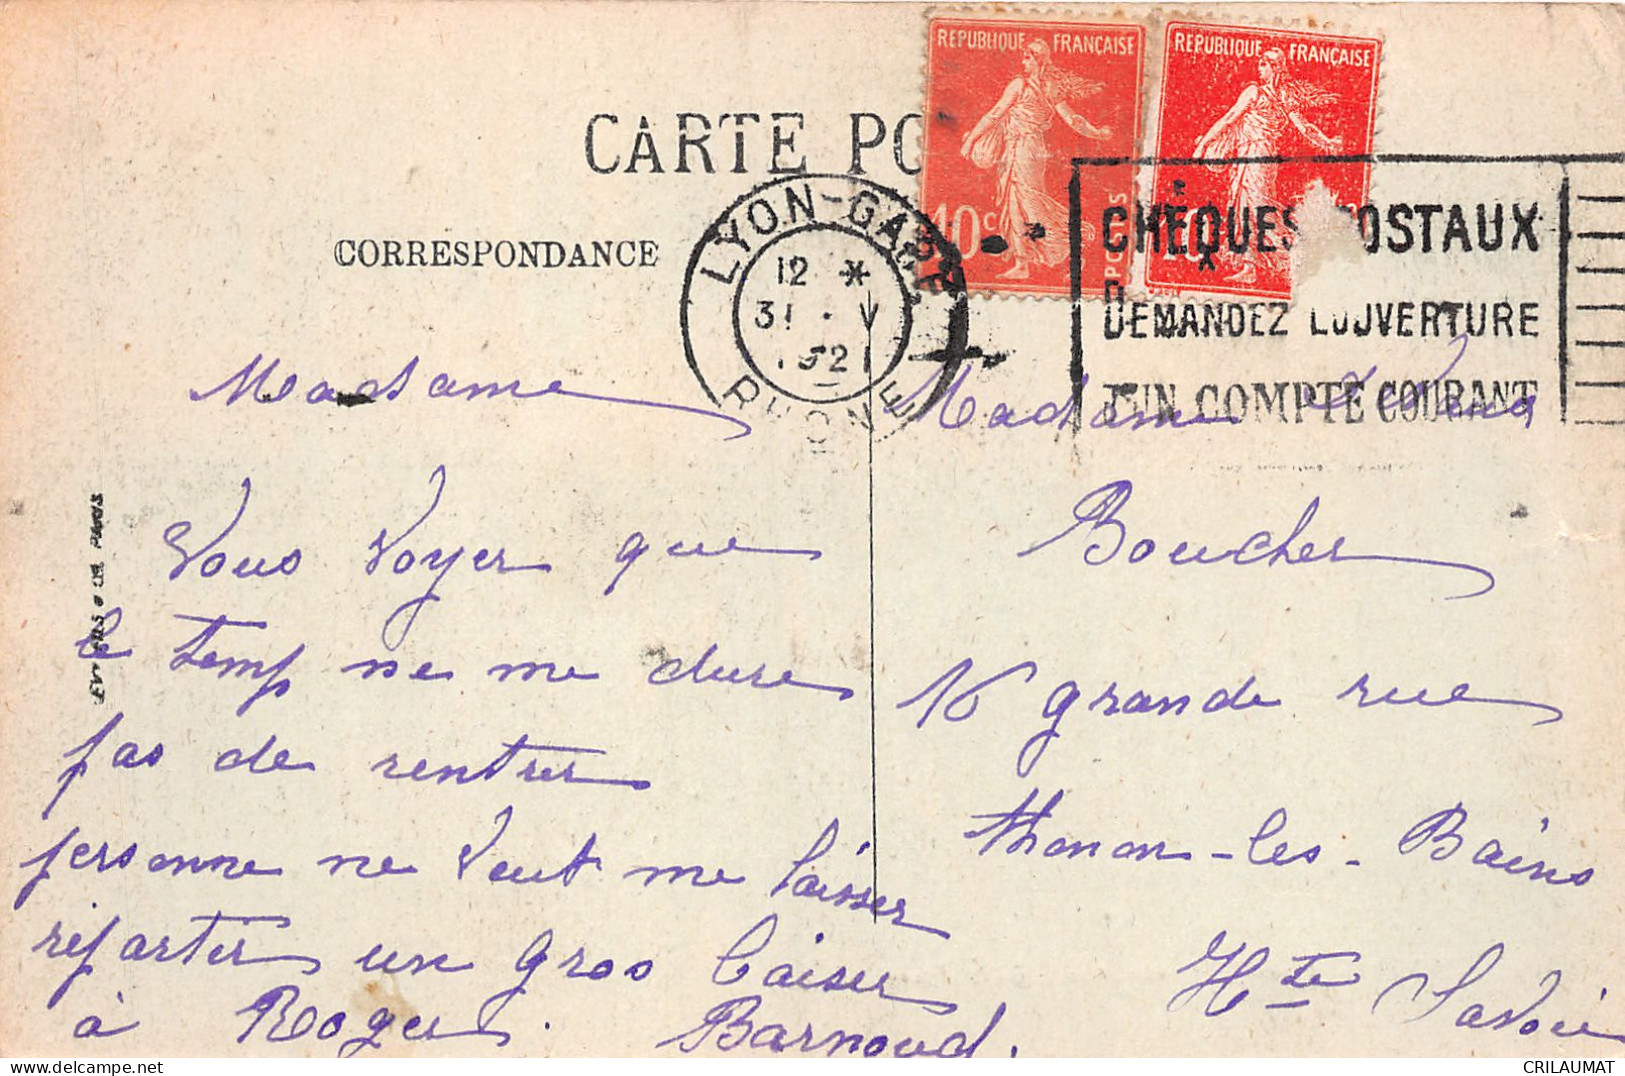 CARTE PO
CORRESPONDANCE
REPUBLIQUE FRANÇAISE
10c
REPUBLIQUE FRANÇAISE
10
LYON-GARE
12 *
31 · V
52
RHONE
CHÈQUES POSTAUX
DEMANDEZ L'OUVERTURE
D'UN COMPTE COURANT
Madame
Vous Voyer que
le temp ne me dure
pas de rentrer
personne ne Veut me laisser
répartir un gros baiser
à Roger. Barnoud.
Madame
Boucher
16 grande rue
thonon-les-Bains
Hte Savoie
PARIS
CRILAUMAT